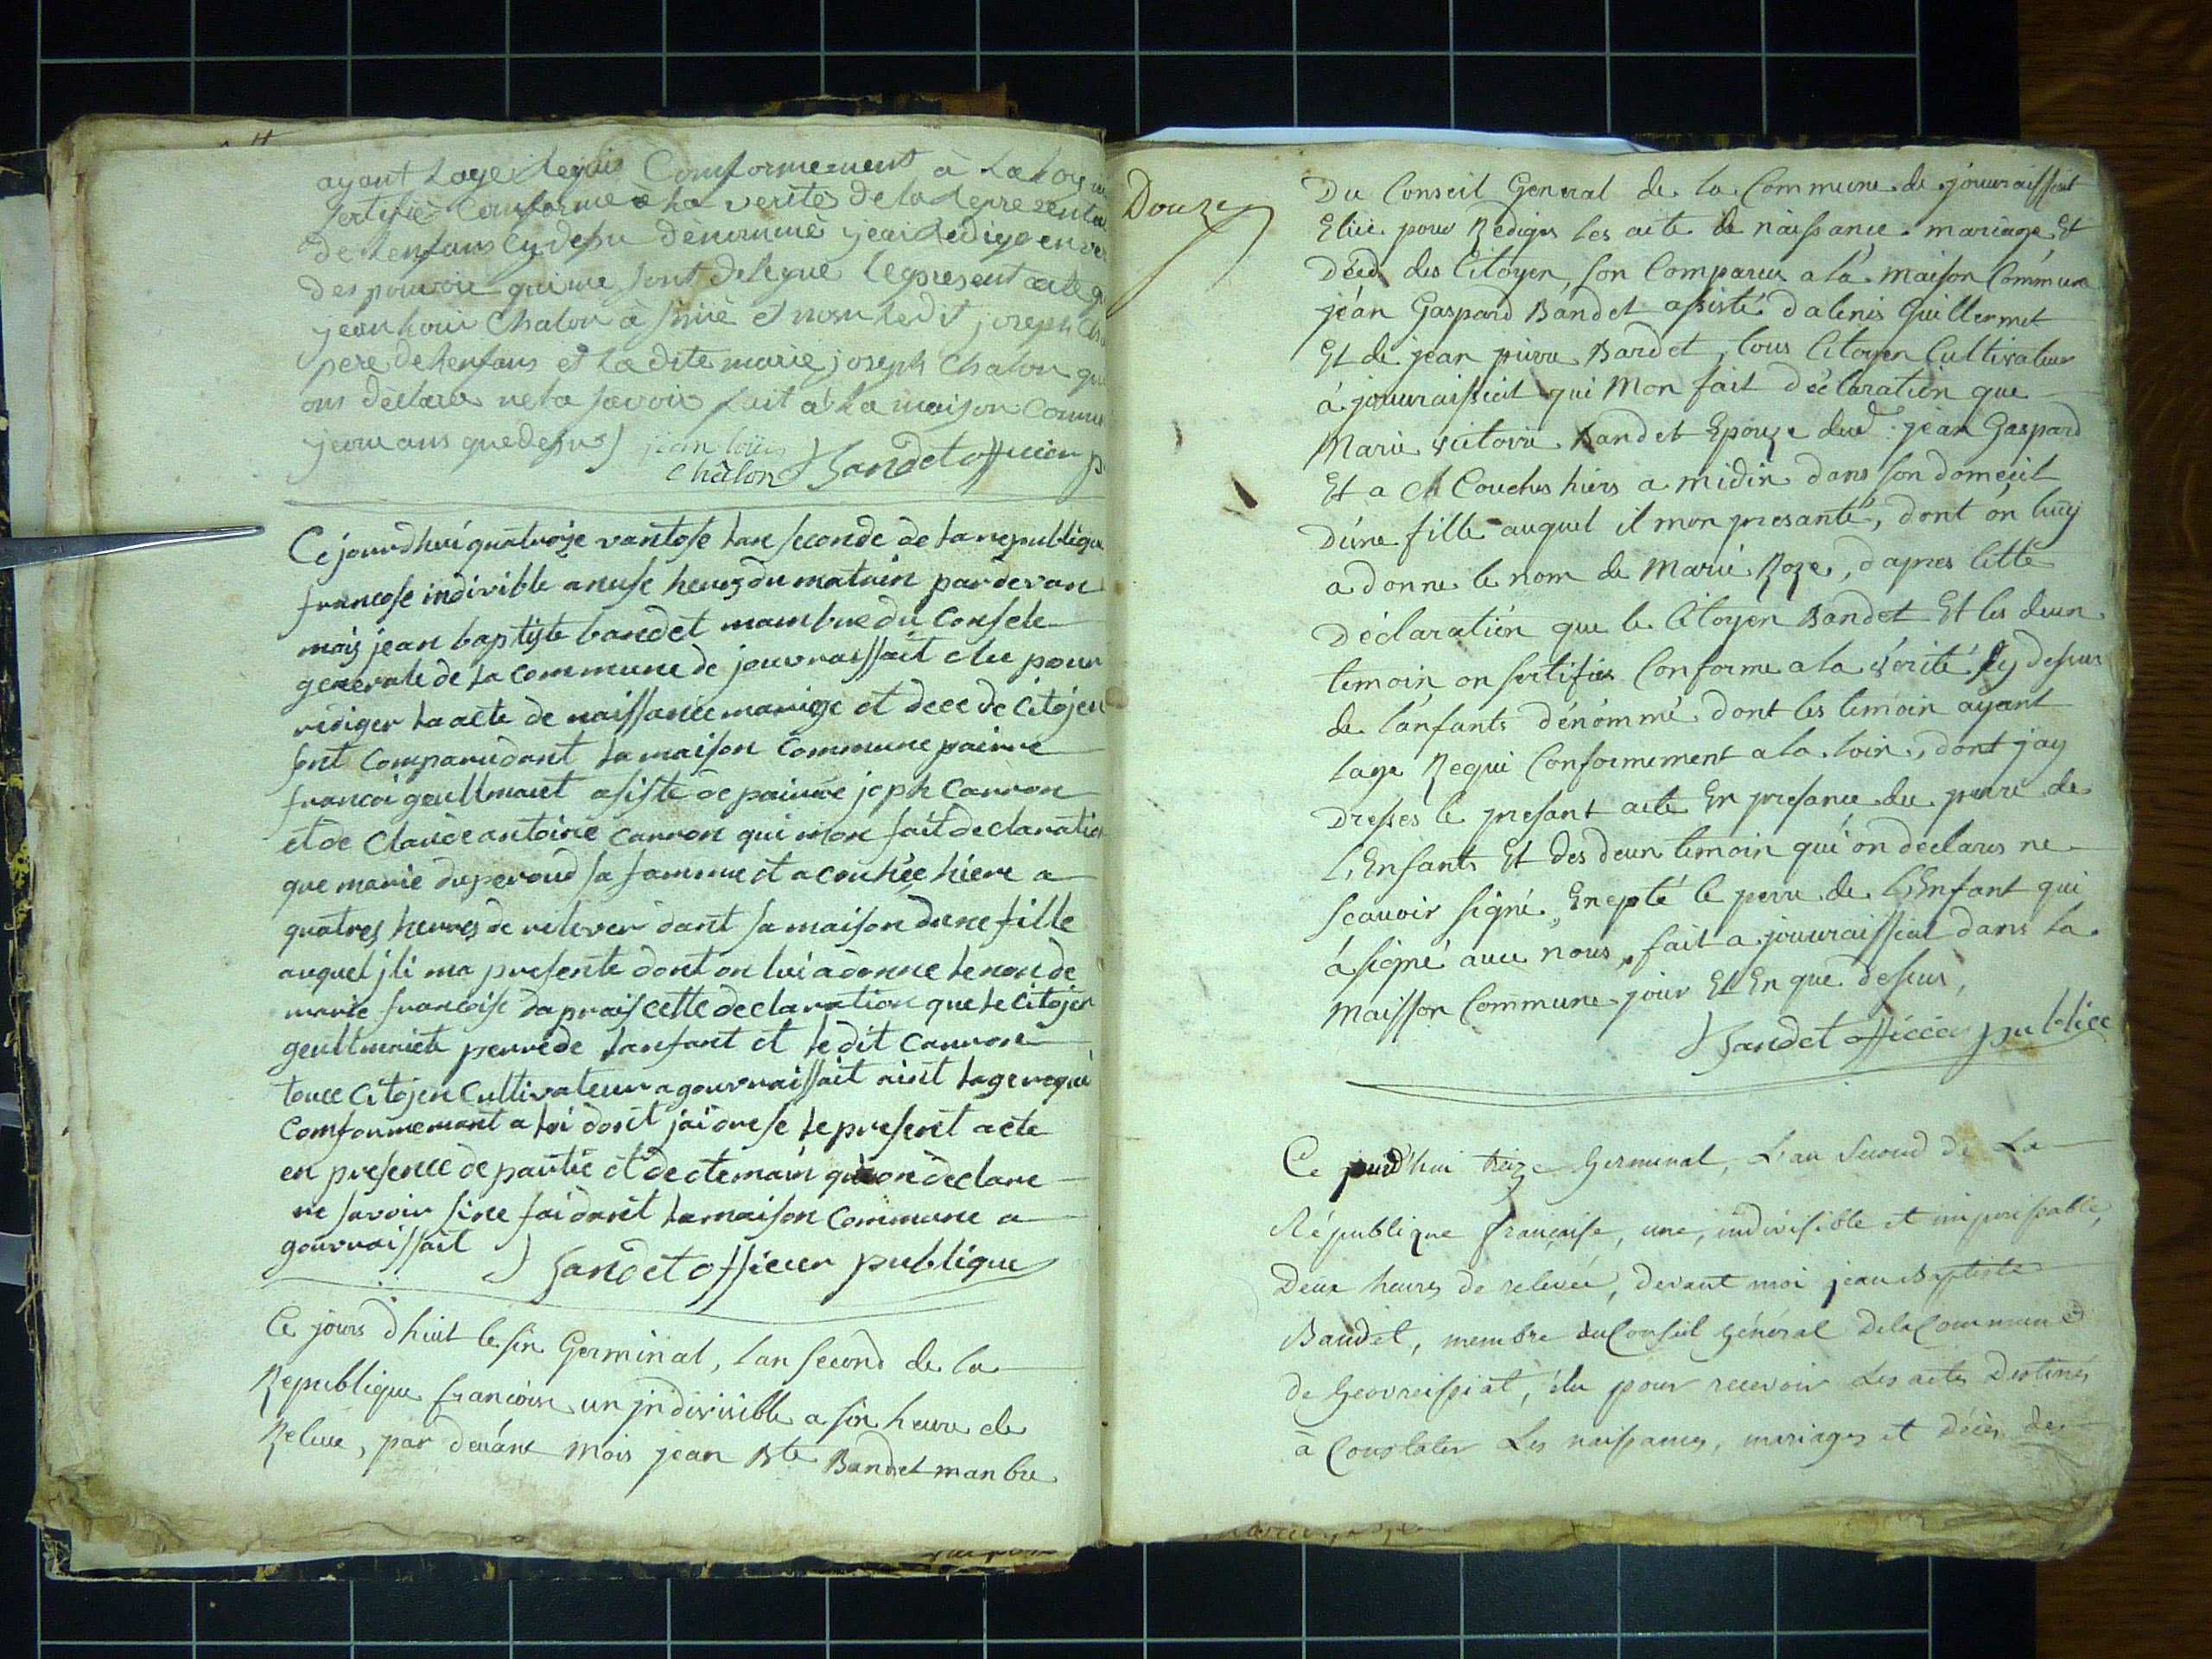 ayant Lage Requis Conformement à La Loy
sertifiè Conforme à La veritès De la
De Lenfans Cy desu Dènommè jeai Redigé en
Des pouvoir qui me sont Delegué le present acte
jean Louis Chalon à sinié et non Ledit joseph
pere De Lenfans et La dite marie joseph Chalon
ons dèclarer ne la savoir fait à La maison
jour ans que Desus jean louis
Châlon Bandet officier
Ce jourdhui quatroze vantose lan seconde de la republique
francose indivible a neuse heures du matain par devan
mois jean baptiste bandet mambre du Consele
generale de la Commune de jouvraissait elu pour
rediger la acte de naissance mariage et dece de Citojen
sont Comparu dant la maison Commune pairre
francoi geullmaiet asisté de pairre joph Carron
et de Claude antoine Carron qui mon fait declaration
que marie duperoud sa famme et a couhée hiere a
quatres heures de relever dant sa maison dune fille
auquel jli ma presente dont on lui a donne le non de
marie francoise da prais cette declaration que le Citojen
geullmaiete perre de lanfant et le dit Carron
touce Citojen Cultivateur a gouvraissait aint lage requi
Comformemant a loi dont jai drese le present acte
en presence de partie et de te main qui on declare
ne savoir sine fai dant la maison Commune a
gouvraissait Bandet officier publique
Ce jours dhuit le six Germinal, lan second de la
Republique francoise un jndivisible a six heure de
Relive, par devánt Mois jean Bte Bandet manbre
Douze
Du Conseil General de la Commune de jouvraissiat
Eluè pour Rediger les acte de naissance. mariage Et
Déed des Citoyen, son Comparus a la maison Commune
jéan Gaspard Bandet assisté dalexis Guillermet
Et de jean pierre Bardet, tous Citoyen Cultivateur
á jouvraissiat qui Mon fait déclaration que
Marie victoire Bandet Epouze dud. jean Gaspard
Et a Couches hiers a midin dans son domecil
Dúne fille auquel il mon presanté, dont on luiy
a donne le nom de Marie Roze, dapres cette
Déclaratión que le Citoyen Bandet Et les deux
temoin on sertifies Conforme a la vérité Cy desus
de lanfants dénómmé dont les temoin ayant
lage Requi Conformement a la loix, dont jay
Dresses le presant acte En presance du perre de
L'Enfants Et des deux temoin qui on declares ne
scavoir signé Enepté le perre de L'Enfant qui
á signé avec nous, fait a jouvraissiat dans la
Maisson Commune jour Et En que desus,
Bandet officier publice
Ce jourd'hui treize Germinal, L'an Second de La
République française, une, indivisible et impérissable,
Deux heures de relevée, Devant moi jean Baptiste
Baudet, membre du Conseil général De la Commune
de Geovreissiat, élu pour recevoir Les actes Destinés
à Constater Les naissances, mariages et décès des